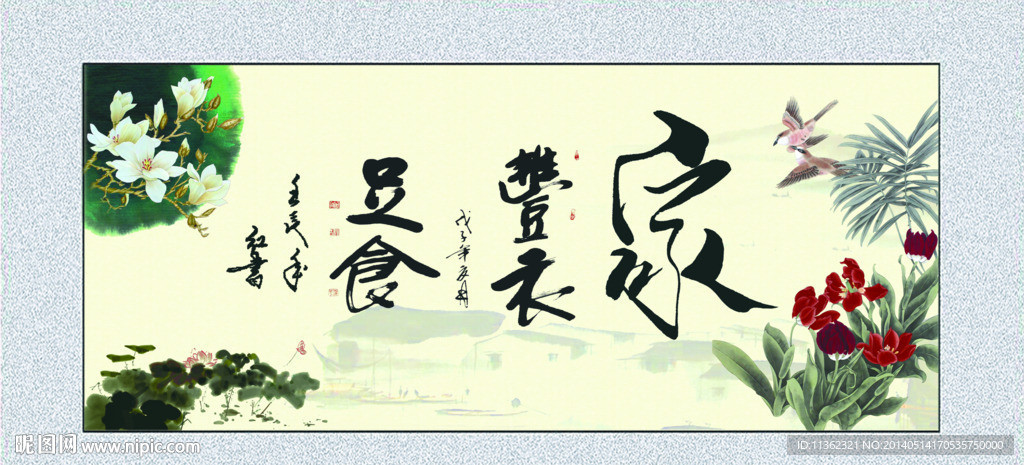 家
豐衣
足食
戊子年夏月
红書
昵图网 www.nipic.com
ID:11362321 NO:20140514170535750000